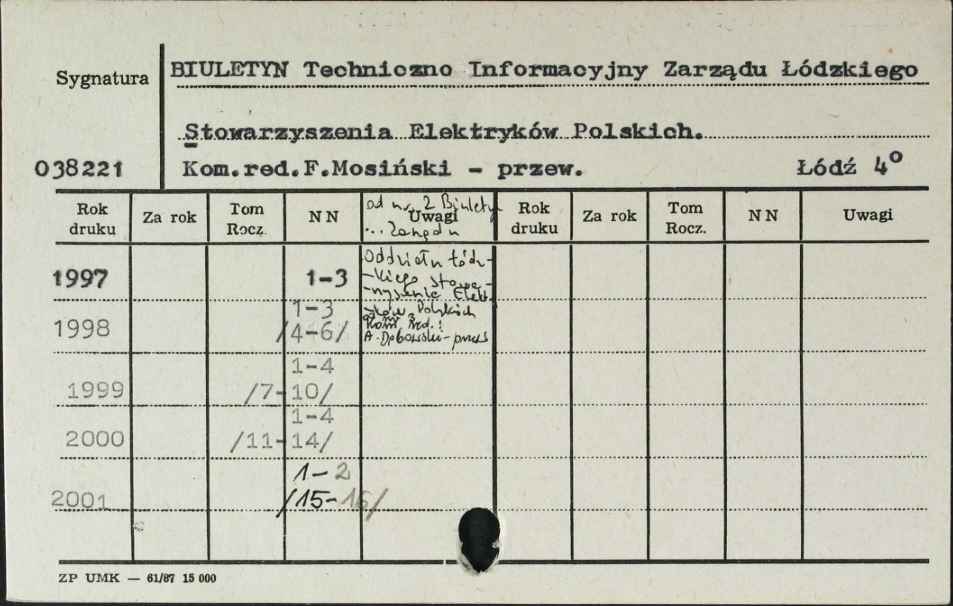 BIULETYN Techniczno Informacyjny Zarządu Łódzkiego
Sygnatura
Stowarzyszenia Elektryków Polskich.
038221 Kom.red.F.Mosiński - przew. Łódź 4°
Rok druku Za rok Tom Rocz. NN Uwagi Rok druku Za rok Tom Rocz. NN Uwagi
od nr 2 Biuletyn
... Zarządu
Oddziału Łódz-
-kiego Stowa-
-rzyszenia Elekt
ryków Polskich
Kom. red.:
1997 1-3
1-3
1998 /4-6/
1-4
1999 /7-10/
1-4
2000 /11-14/
1-2
2001 /15-16/
ZP UMK — 61/87 15 000